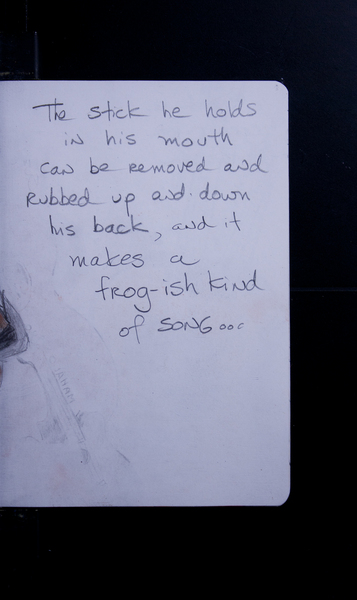 The stick he holds
in his mouth
can be removed and
Rubbed up and down
his back, and it
makes a
frog-ish kind
of SONG...